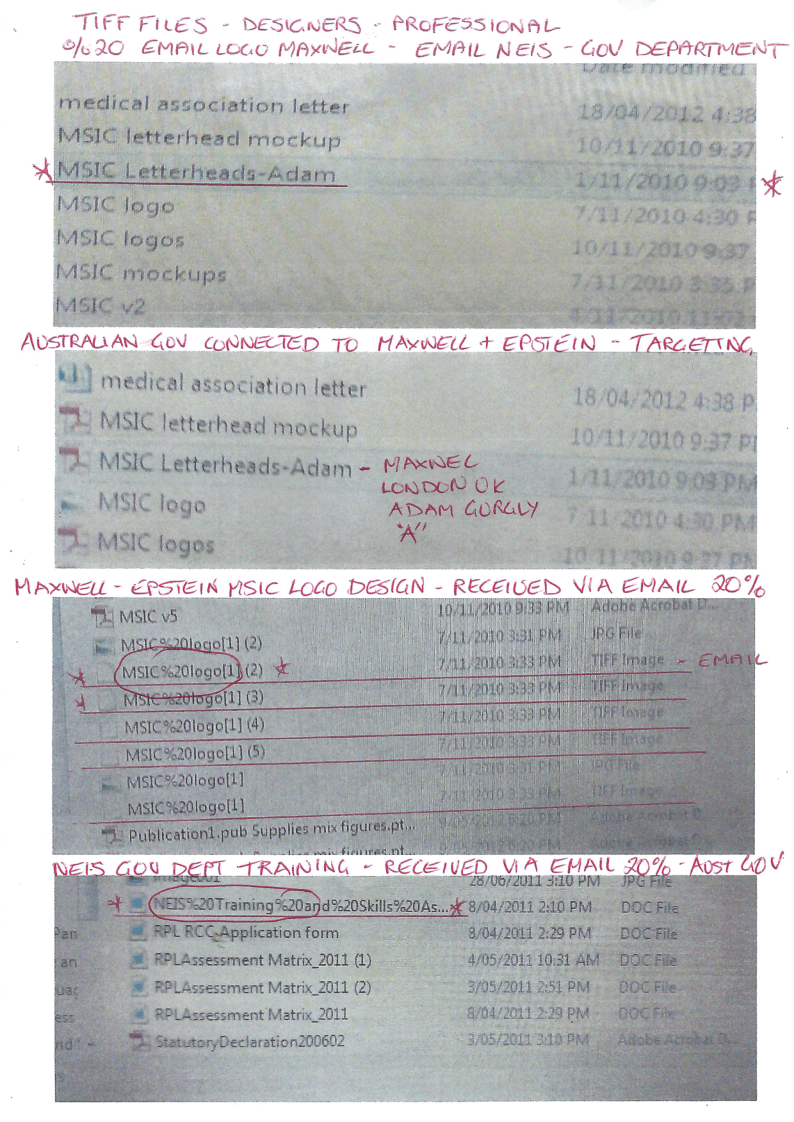 TIFF FILES - DESIGNERS - PROFESSIONAL
%20 EMAIL LOGO MAXWELL - EMAIL NEIS - GOV DEPARTMENT
Date modified
medical association letter 18/04/2012 4:38
MSIC letterhead mockup 10/11/2010 9:37
MSIC Letterheads-Adam 1/11/2010 9:03 P
MSIC logo 7/11/2010 4:30 P
MSIC logos 10/11/2010 9:37
MSIC mockups 7/11/2010 3:35 P
MSIC v2 4/11/2010 11:02
AUSTRALIAN GOV CONNECTED TO MAXWELL + EPSTEIN - TARGETING
medical association letter 18/04/2012 4:38 P
MSIC letterhead mockup 10/11/2010 9:37 P
MSIC Letterheads-Adam - MAXWEL 1/11/2010 9:03 PM
LONDON UK
MSIC logo ADAM GURGLY 7 11/2010 4:30 PM
"A"
MSIC logos 10 11/2010 9:37 PM
MAXWELL - EPSTEIN MSIC LOGO DESIGN - RECEIVED VIA EMAIL 20%
MSIC v5 10/11/2010 9:33 PM Adobe Acrobat D...
MSIC%20logo[1] (2) 7/11/2010 3:31 PM JPG File
MSIC%20logo[1] (2) 7/11/2010 3:33 PM TIFF Image - EMAIL
MSIC%20logo[1] (3) 7/11/2010 3:33 PM TIFF Image
MSIC%20logo[1] (4) 7/11/2010 3:33 PM TIFF Image
MSIC%20logo[1] (5) 7/11/2010 3:33 PM TIFF Image
MSIC%20logo[1] 7/11/2010 3:31 PM JPG File
MSIC%20logo[1] 7/11/2010 3:33 PM TIFF Image
Publication1.pub Supplies mix figures.pt... 9/05/2012 6:20 PM Adobe Acrobat D...
mix figures.pt...
NEIS GOV DEPT TRAINING - RECEIVED VIA EMAIL 20% - AUST GOV
image001 28/06/2011 3:10 PM JPG File
NEIS%20Training%20and%20Skills%20As... 8/04/2011 2:10 PM DOC File
Pan RPL RCC Application form 8/04/2011 2:29 PM DOC File
an RPLAssessment Matrix_2011 (1) 4/05/2011 10:31 AM DOC File
uag RPLAssessment Matrix_2011 (2) 3/05/2011 2:51 PM DOC File
ess RPLAssessment Matrix_2011 8/04/2011 2:29 PM DOC File
nd StatutoryDeclaration200602 3/05/2011 3:10 PM Adobe Acrobat D...